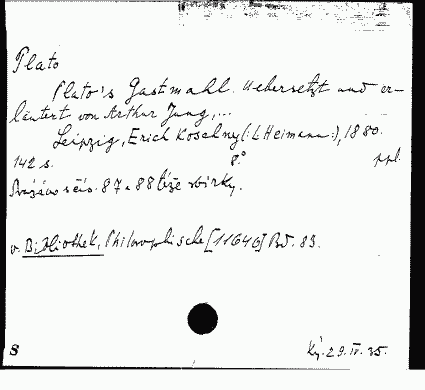 Plato
Plato's Gastmahl. Uebersetzt und er-
läutert von Arthur Jung,...
Leipzig, Erich Koschny (:L Heimann:), 1880.
142 s. 8.° ppl.
Svázáno s čís. 87 a 88 téže sbírky.
v. Bibliothek, Philosophische [11646] Bd. 89.
S Ký. 29.IV.35.